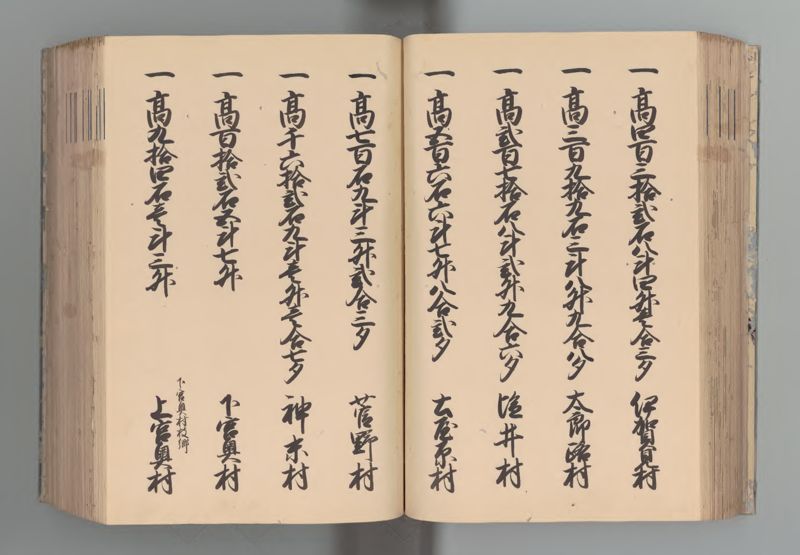 一 高四百三拾弐石八斗四升壱合三夕 伊賀見村
一 高三百九拾九石三斗八升九合八夕 太郎路村
一 高弐百七拾石八斗弐升九合六夕 塩井村
一 高五百六石六斗七升八合弐夕 土屋原村
一 高七百石九斗三升弐合三夕 菅野村
一 高千六拾弐石九斗壱升壱合七夕 神末村
一 高百拾弐石五斗七升 下宮奥村
下宮奥村枝郷
一 高九拾四石壱斗三升 上宮奥村